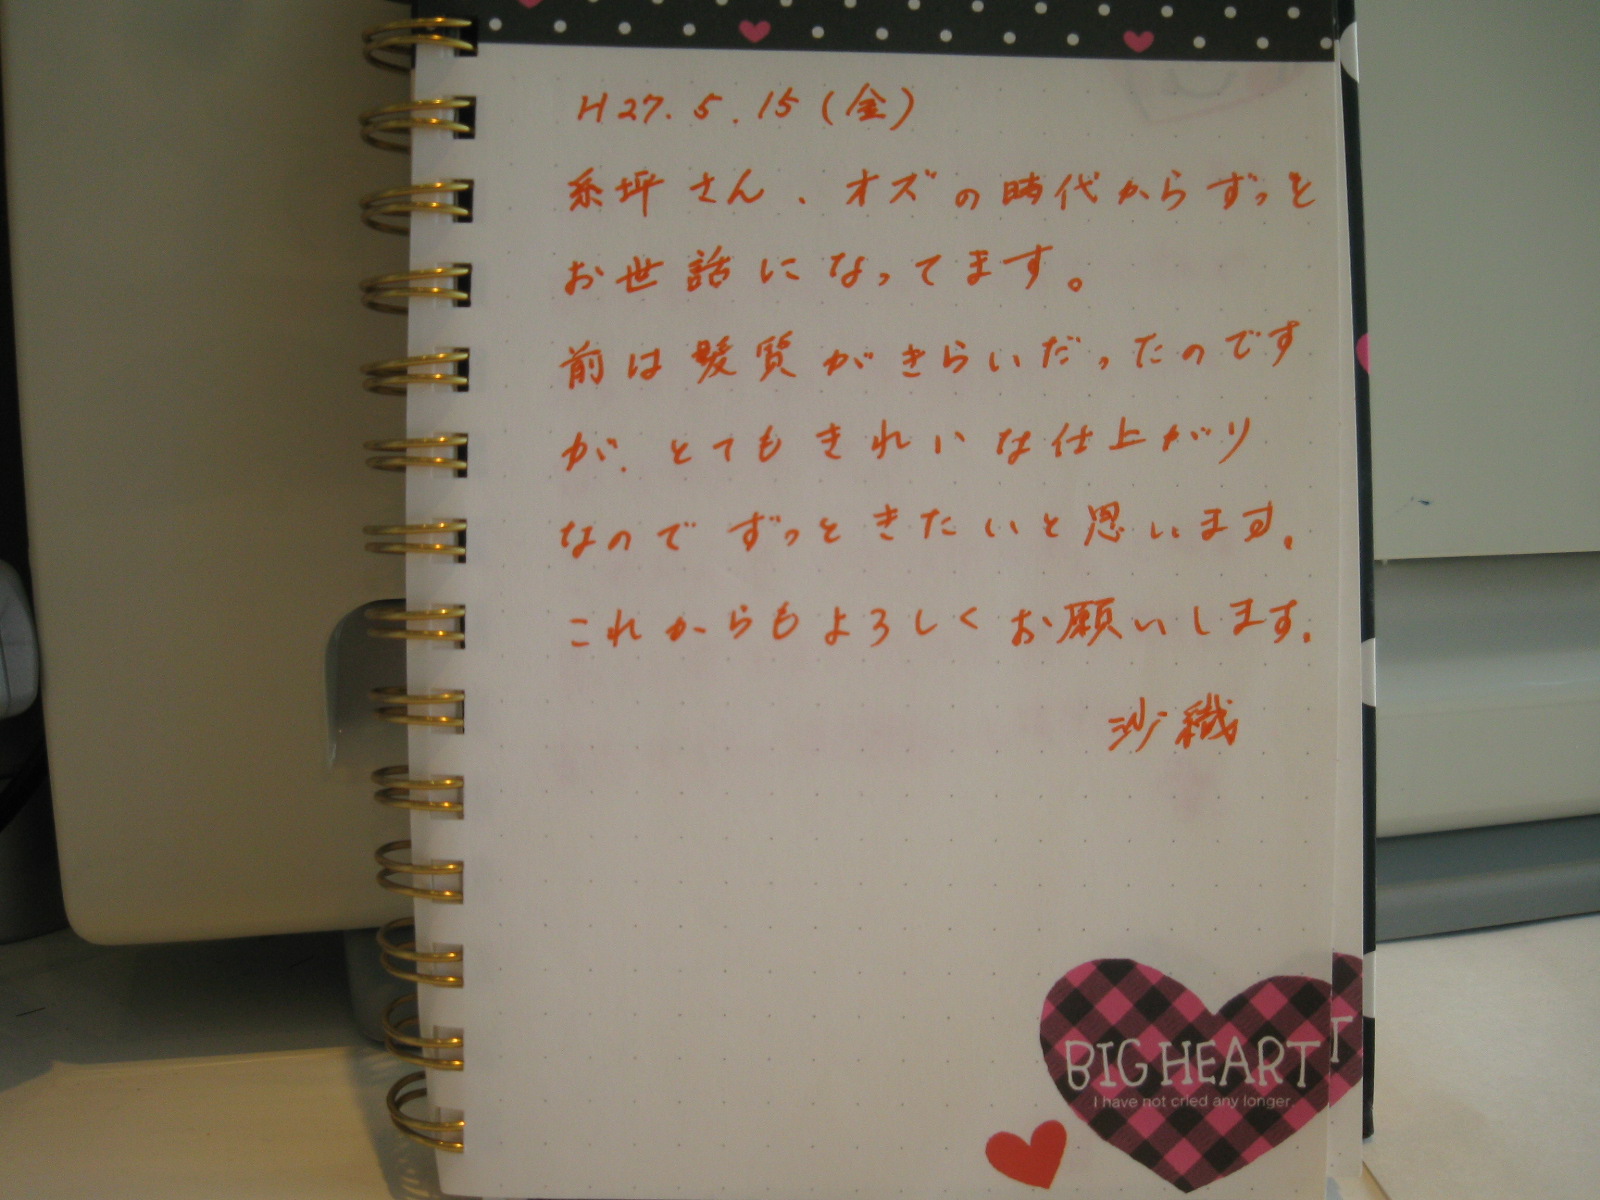 H27.5.15(金)
糸坪さん、オズの時代からずっと
お世話になってます。
前は髪質がきらいだったのです
が、とてもきれいな仕上がり
なのでずっときたいと思います。
これからもよろしくお願いします。
沙織
BIG HEART
I have not cried any longer.
T